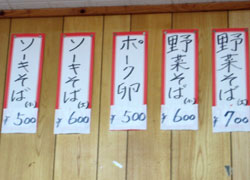 野菜そば(大)
¥700
野菜そば(小)
¥600
ポーク卵
¥500
ソーキそば(大)
¥600
ソーキそば(小)
¥500